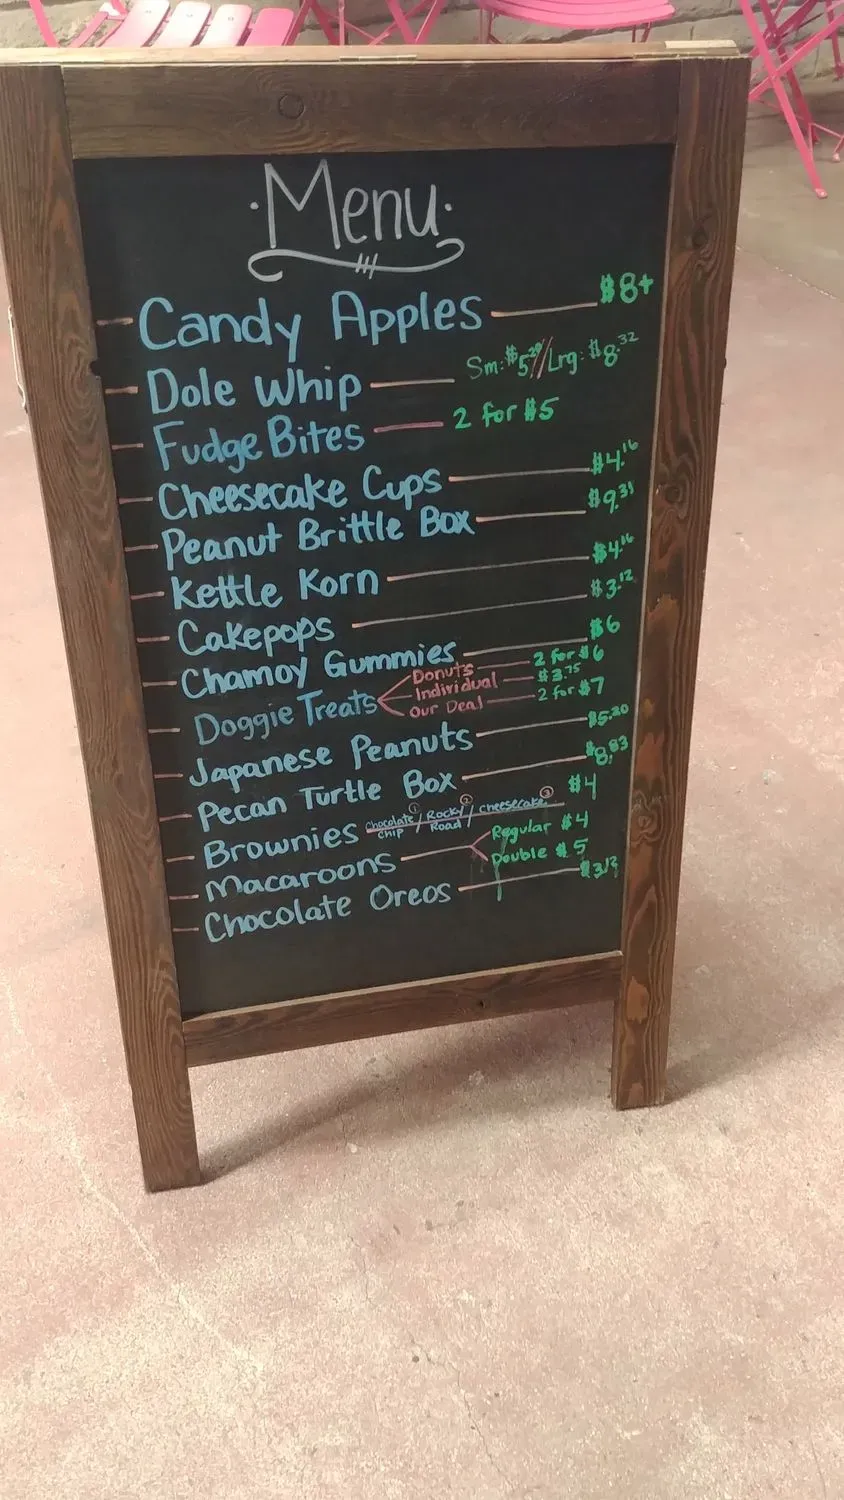 ·Menu·
Candy Apples $8+
Dole Whip Sm: $5.20 / Lrg: $8.32
Fudge Bites 2 for $5
Cheesecake Cups $4.16
Peanut Brittle Box $9.31
Kettle Korn $4.16
Cakepops $3.12
Chamoy Gummies $6
Doggie Treats
Donuts 2 for $6
Individual $3.75
Our Deal 2 for $7
Japanese Peanuts $5.20
Pecan Turtle Box $8.83
Brownies Chocolate Chip 1 / Rocky Road 2 / Cheesecake 3 $4
Macaroons
Regular $4
Double $5
Chocolate Oreos $3.12